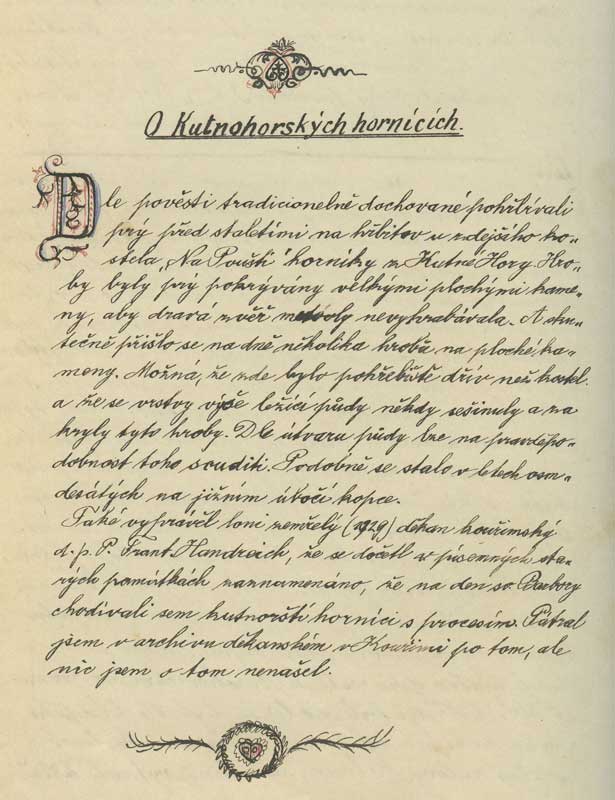 O Kutnohorských hornících.
Dle pověsti tradicionelně dochované pohřbívali
prý před staletími na hřbitov u zdejšího ko-
stela „Na Poušti" horníky z Kutné Hory. Hro-
by byly prý pokrývány velkými plochými kame-
ny, aby dravá zvěř mrtvoly nevyhrabávala. A sku-
tečně přišlo se na dně několika hrobů na ploché ka-
meny. Možná, že zde bylo pohřebiště dřív než kostel.
a že se vrstvy výše ležící půdy někdy sešinuly a za
kryly tyto hroby. Dle útvaru půdy lze na pravděpo-
dobnost toho souditi. Podobně se stalo v letech osm-
desátých na jižním úbočí kopce.
Také vyprávěl loni zemřelý (1929) děkan kouřimský
d. p. P. Frant. Handreich, že se dočetl v písemných sta-
rých památkách zaznamenáno, že na den sv. Barbory
chodívali sem kutnorští horníci s procesím. Pátral
jsem v archivu děkanském v Kouřimi po tom, ale
nic jsem o tom nenašel.